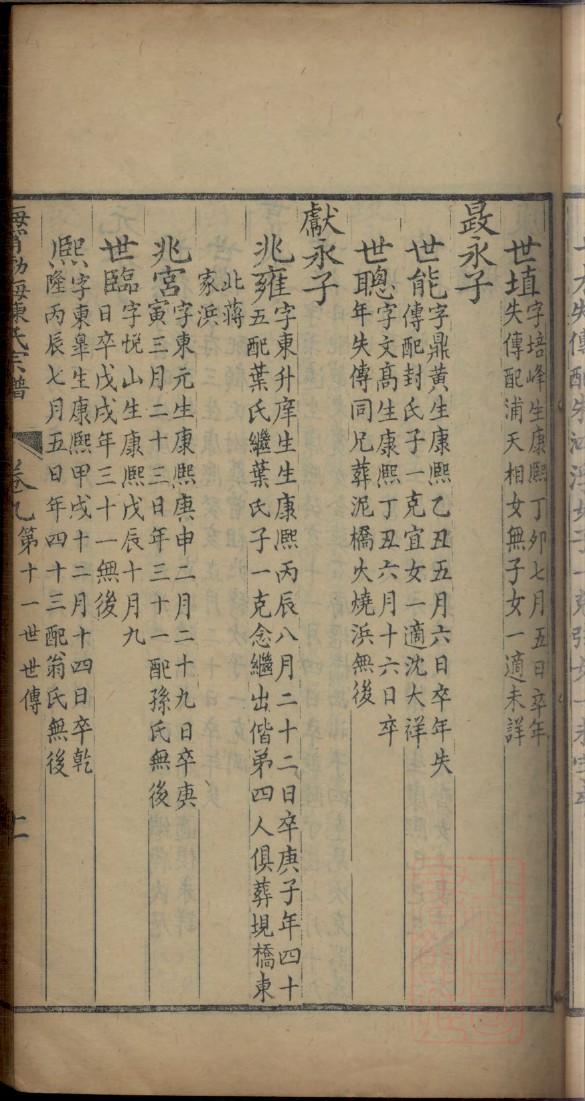 世埴字培峰生康熙丁卯七月五日卒年
失傳配浦天相女無子女一適未詳
晸永子
世能字鼎黃生康熙乙丑五月六日卒年失
傳配封氏子一克宜女一適沈大祥
世聰字文高生康熙丁丑六月十六日卒
年失傳同兄葬泥橋火燒浜無後
獻永子
兆雍字東升庠生生康熙丙辰八月二十二日卒庚子年四十
五配葉氏繼葉氏子一克念繼出偕弟四人俱葬垷橋東
北蔣
家浜
兆宮字東元生康熙庚申二月二十九日卒庚
寅三月二十三日年三十一配孫氏無後
世臨字悦山生康熙戊辰十月九
日卒戊戌年三十一無後
熙字東皋生康熙甲戌十二月十四日卒乾
隆丙辰七月五日年四十三配翁氏無後
海陳氏宗譜 卷九 第十一世世傳 十一